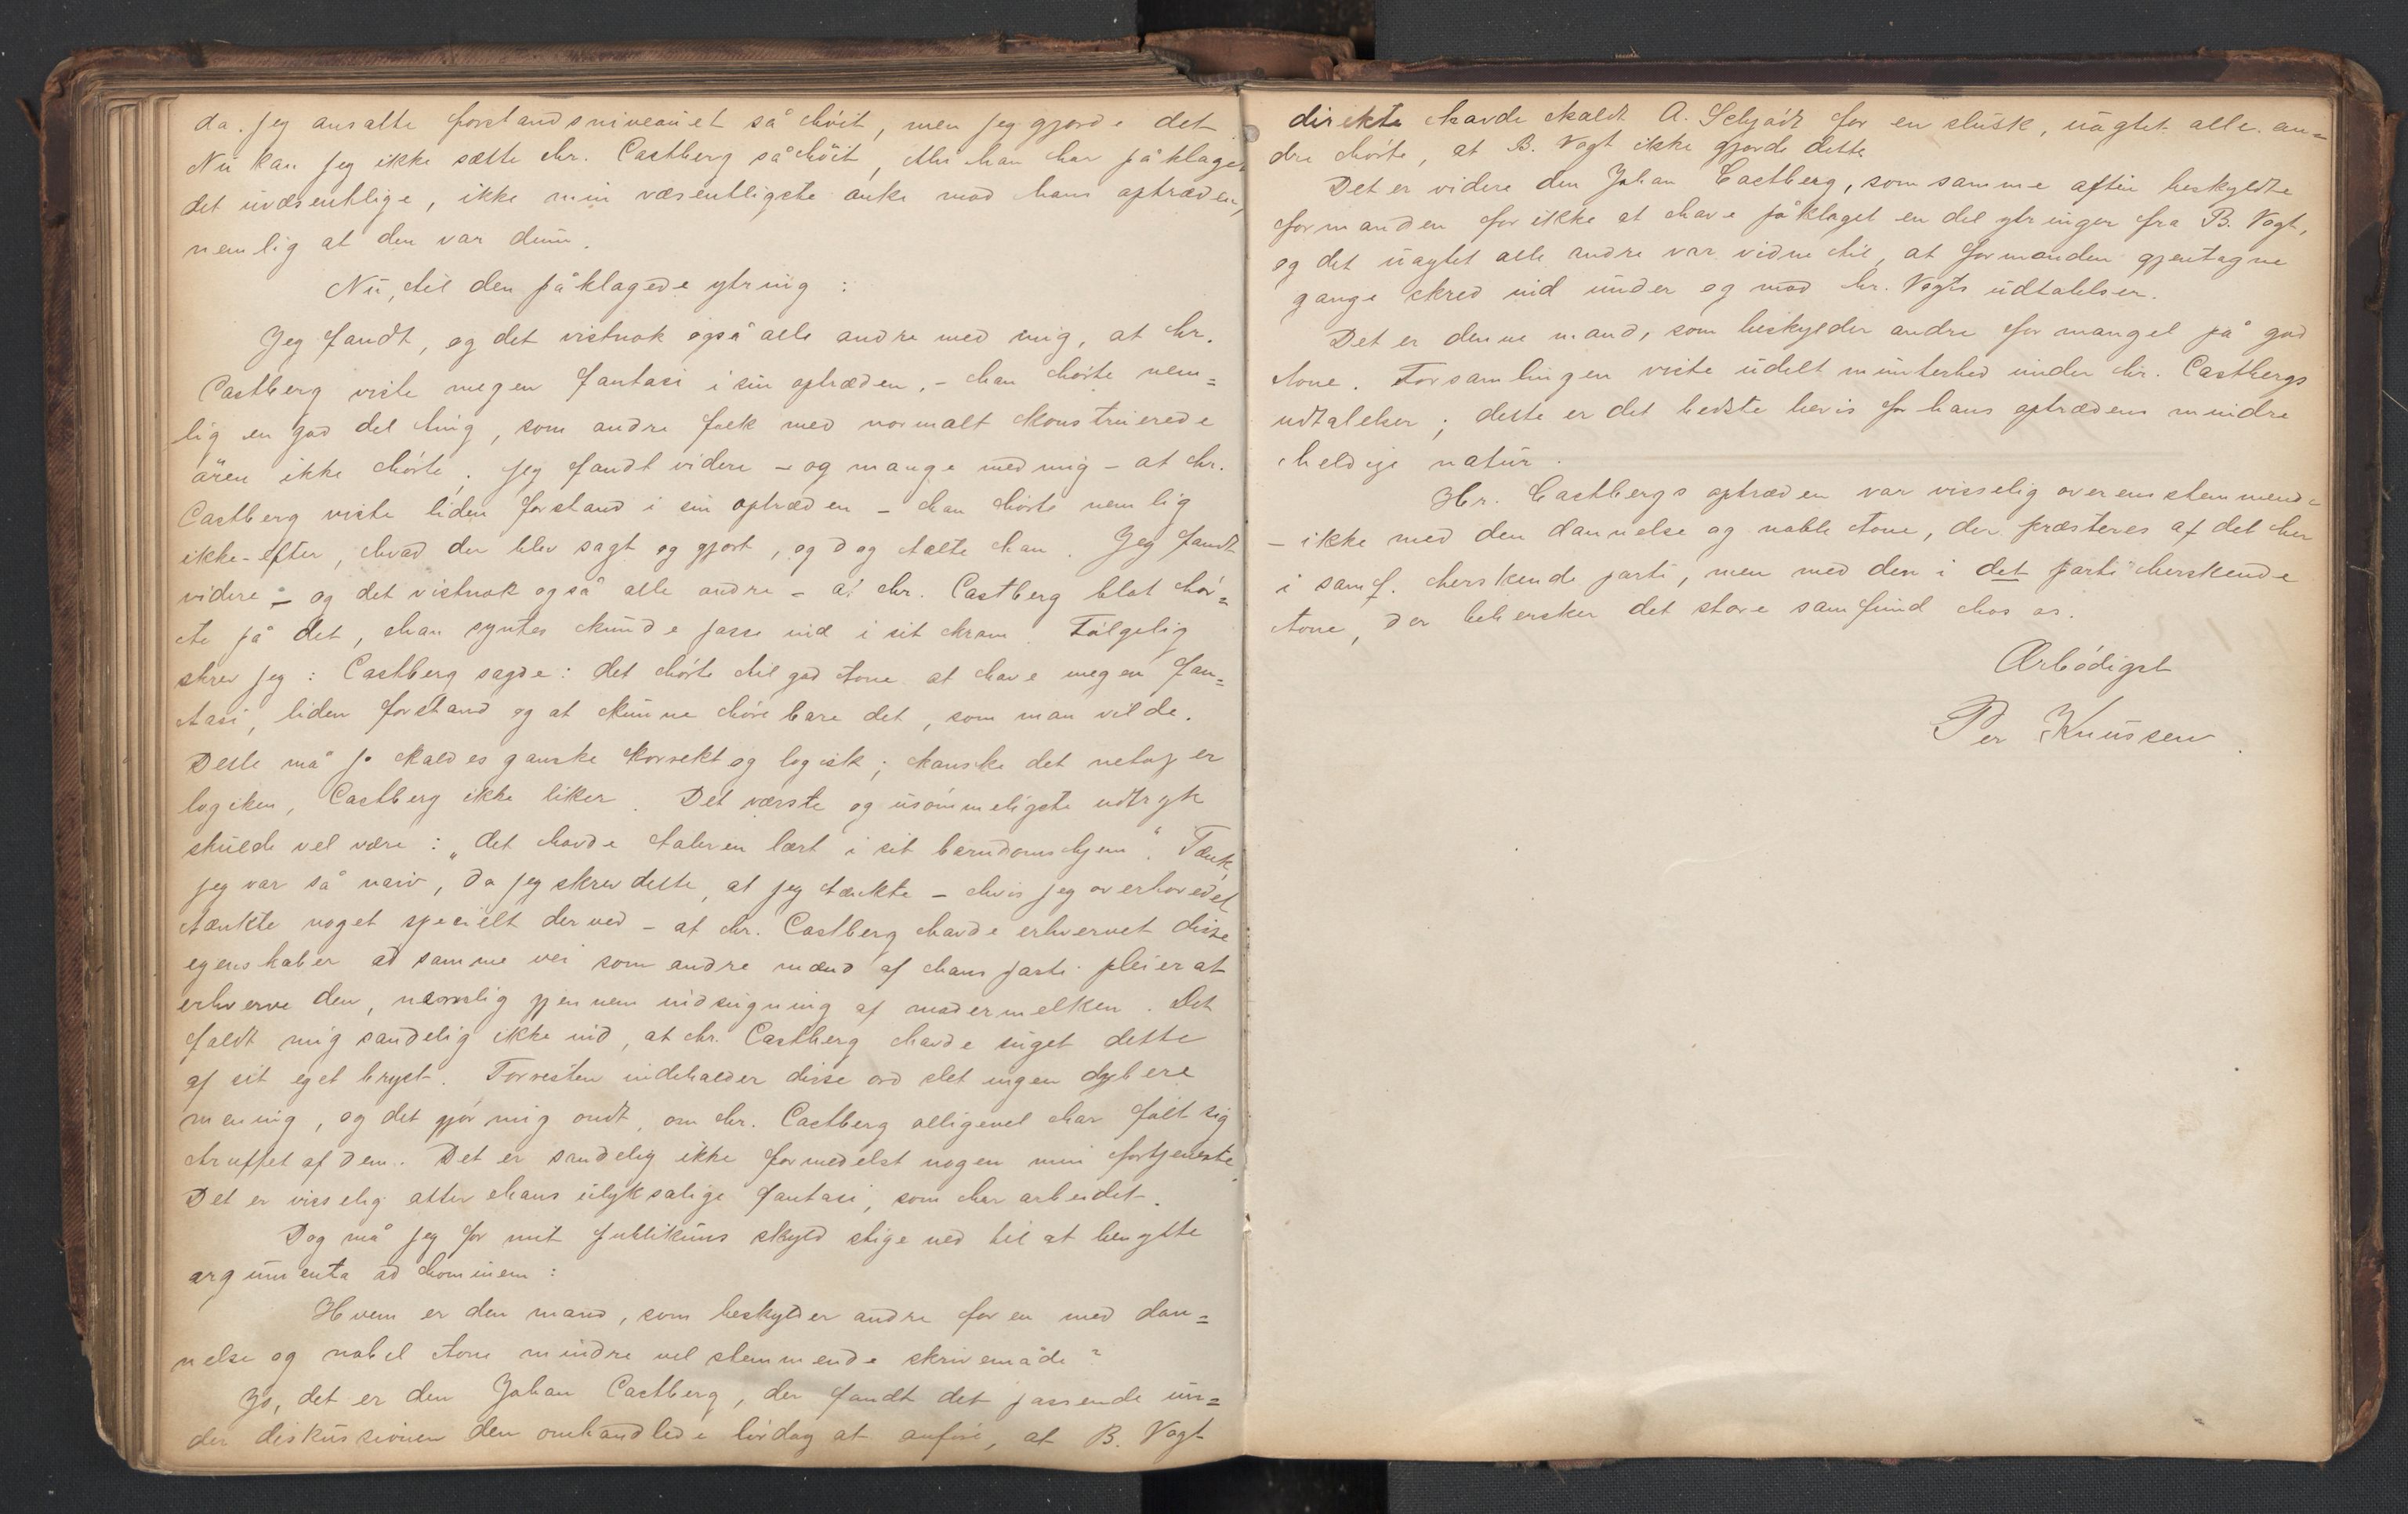 da jeg ansatte forstandsniveauet så höit, men jeg gjorde det.
Nu kan jeg ikke sætte hr. Castberg så höit, thi han har påklaget
det uvæsentlige, ikke min væsentligste anke mod hans optræden,
nemlig at den var dum.
Nu, til den påklagede ytring:
Jeg fandt, og det vistnok også alle andre med mig, at hr.
Castberg viste megen fantasi i sin optræden, - han hörte nem=
lig en god del ting, som andre folk med normalt konstruerede
ören ikke hörte. Jeg fandt videre - og mange med mig - at hr.
Castberg viste liden forstand i sin optræden - han hörte nemlig
ikke efter, hvad der blev sagt og gjort, og dog talte han. Jeg fandt
videre - og det vistnok også alle andre - at hr. Castberg blot hör=
te på det, han syntes kunde passe ind i sit kram. Fölgelig
skrev jeg: Castberg sagde: det hörte til god tone at have megen fan=
tasi, liden forstand og at kunne höre bare det, som man vilde.
Dette må jo kaldes ganske korrekt og logisk; kanske det netop er
logiken, Castberg ikke liker. Det værste og usömmeligste udtryk
skulde vel være: „det havde taleren lært i sit barndomshjem“. Tænk,
jeg var så naiv, da jeg skrev dette, at jeg tænkte - hvis jeg overhovedet
tænkte noget specielt derved - at hr. Castberg havde erhvervet disse
egenskaber ad samme vei som andre mænd af hans parti pleier at
erhverve den, nemlig gjennem indsugning af modermelken. Det
faldt mig sandelig ikke ind, at hr. Castberg havde suget dette
af sit eget bryst. Forresten indeholder disse ord slet ingen dybere
mening, og det gjör mig ondt, om hr. Castberg alligevel har fölt sig
truffet af dem. Det er sandelig ikke formedelst nogen min fortjeneste.
Det er visselig atter hans ulyksalige fantasi, som har arbeidet.
Dog må jeg for mit publikums skyld stige ned til at benytte
argumenta ad hominem:
Hvem er den mand, som beskylder andre for en med dan=
nelse og nobel tone mindre vel stemmende skrivemåde?
Jo, det er den Johan Castberg, der fandt det passende un=
der diskussionen den omhandlede lördag at anföre, at B. Vogt
direkte havde kaldt A. Schjödt for en slusk, uagtet alle an=
dre hörte, at B. Vogt ikke gjorde dette.
Det er videre den Johan Castberg, som samme aften beskyldte
formanden for ikke at have påklaget en del ytringer fra B. Vogt,
og det uagtet alle andre var vidne til, at formanden gjentagne
gange skred ind under og mod hr. Vogts udtalelser.
Det er denne mand, som beskylder andre for mangel på god
tone. Forsamlingen viste udelt munterhed under hr. Castbergs
udtalelser; dette er det bedste bevis for hans optrædens mindre
heldige natur.
Hr. Castbergs optræden var visselig overensstemmende
- ikke med den dannelse og noble tone, der præsteres af det her
i samf. herskende parti, men med den i det parti herskende
tone, der behersker det store samfund hos os.
Ærbödigst
Per Knussen.